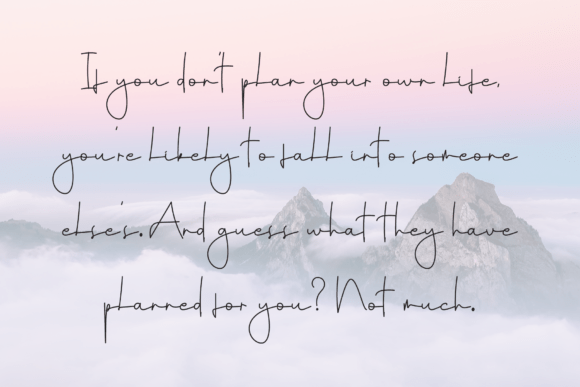 If you don't plan your own life,
you're likely to fall into someone
else's. And guess what they have
planned for you? Not much.